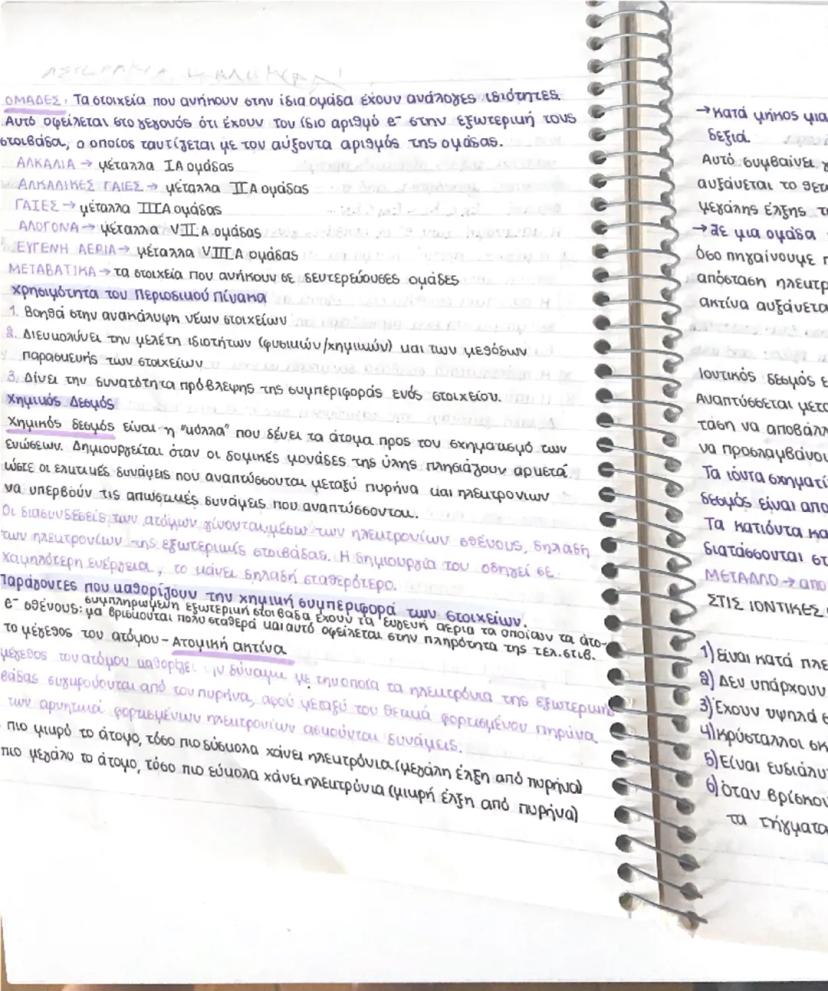 ΟΜΑΔΕΣ: Τα στοιχεία που ανήκουν στην ίδια ομάδα έχουν ανάλογες ιδιότητες.
Αυτό οφείλεται στο γεγονός ότι έχουν τον ίδιο αριθμό e⁻ στην εξωτερική τους
στοιβάδα, ο οποίος ταυτίζεται με τον αύξοντα αριθμός της ομάδας.
ΑΛΚΑΛΙΑ → μέταλλα ΙΑ ομάδας
ΑΛΚΑΛΙΚΕΣ ΓΑΙΕΣ → μέταλλα ΙΙΑ ομάδας
ΓΑΙΕΣ → μέταλλα ΙΙΙΑ ομάδας
ΑΛΟΓΟΝΑ → μέταλλα VΙΙΑ ομάδας
ΕΥΓΕΝΗ ΑΕΡΙΑ → μέταλλα VΙΙΙΑ ομάδας
ΜΕΤΑΒΑΤΙΚΑ → τα στοιχεία που ανήκουν σε δευτερεύουσες ομάδες
Χρησιμότητα του Περιοδικού Πίνακα
1. Βοηθά στην ανακάλυψη νέων στοιχείων
2. Διευκολύνει την μελέτη ιδιοτήτων (φυσικών/χημικών) και των μεθόδων
παρασκευής των στοιχείων
3. Δίνει την δυνατότητα πρόβλεψης της συμπεριφοράς ενός στοιχείου.
Χημικός Δεσμός
Χημικός δεσμός είναι η "κόλλα" που δένει τα άτομα προς τον σχηματισμό των
ενώσεων. Δημιουργείται όταν οι δομικές μονάδες της ύλης πλησιάζουν αρκετά
ώστε οι ελκτικές δυνάμεις που αναπτύσσονται μεταξύ πυρήνα και ηλεκτρονίων
να υπερβούν τις απωστικές δυνάμεις που αναπτύσσονται.
Οι διασυνδέσεις των ατόμων γίνονται μέσω των ηλεκτρονίων σθένους, δηλαδή
των ηλεκτρονίων της εξωτερικής στοιβάδας. Η δημιουργία του οδηγεί σε
χαμηλότερη ενέργεια, το κάνει δηλαδή σταθερότερο.
Παράγοντες που καθορίζουν την χημική συμπεριφορά των στοιχείων.
συμπληρωμένη εξωτερική στοιβάδα έχουν τα ευγενή αέρια τα οποίων τα άτο-
e⁻ σθένους: μα βρίσκονται πολύ σταθερά και αυτό οφείλεται στην πληρότητα της τελ. στιβ.
το μέγεθος του ατόμου - Ατομική ακτίνα
μέγεθος του ατόμου καθορίζει την δύναμη με την οποία τα ηλεκτρόνια της εξωτερικής
βάδας συγκρούονται από τον πυρήνα, αφού μεταξύ του θετικά φορτισμένου πηρήνα
των αρνητικά φορτισμένων ηλεκτρονίων ασκούνται δυνάμεις.
πιο μικρό το άτομο, τόσο πιο δύσκολα χάνει ηλεκτρόνια (μεγάλη έλξη από πυρήνα)
πιο μεγάλο το άτομο, τόσο πιο εύκολα χάνει ηλεκτρόνια (μικρή έλξη από πυρήνα)
→ Κατά μήκος μια
δεξιά.
Αυτό συμβαίνει
αυξάνεται το θετ
μεγάλης έλξης
→ Σε μια ομάδα
όσο πηγαίνουμε
απόσταση ηλεκτρ
ακτίνα αυξάνετα
Ιοντικός δεσμός
Αναπτύσσεται μετα
τάση να αποβάλλ
να προσλαμβάνου
Τα ιόντα σχηματί
δεσμός είναι απο
Τα κατιόντα κα
διατάσσονται στ
ΜΕΤΑΛΛΟ → απο
ΣΤΙΣ ΙΟΝΤΙΚΕΣ
1) Είναι κατά πλε
2) Δεν υπάρχουν
3) Έχουν υψηλά
4) Κρύσταλλοι σκ
5) Είναι ευδιάλυ
6) Όταν βρίσκου
τα τήγματα